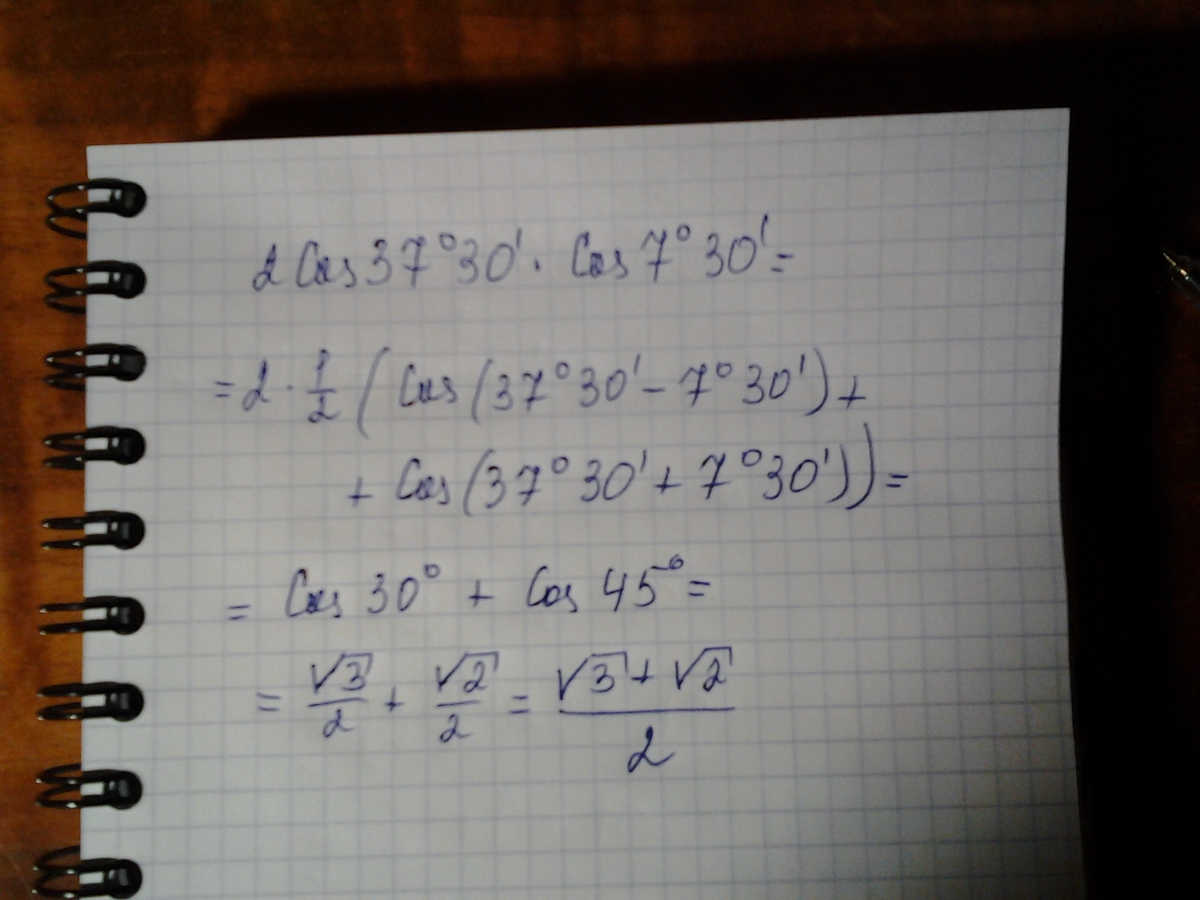 2 Cos 37°30' · Cos 7°30' =
= 2 · 1/2 ( Cos (37°30' - 7°30') +
+ Cos (37°30' + 7°30')) =
= Cos 30° + Cos 45° =
= √3/2 + √2/2 = (√3 + √2)/2